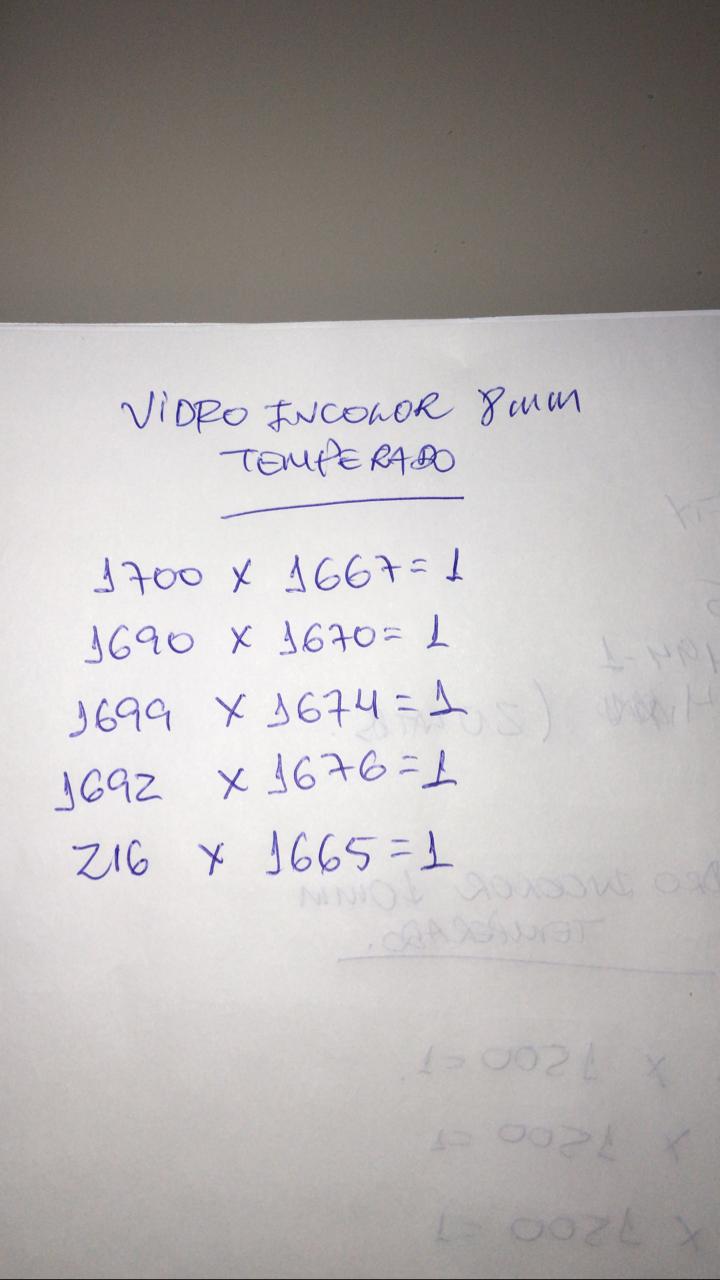 VIDRO INCOLOR 8mm
TEMPERADO
1700 x 1667=1
1690 x 1670=1
1699 x 1674=1
1692 x 1676=1
216 x 1665=1